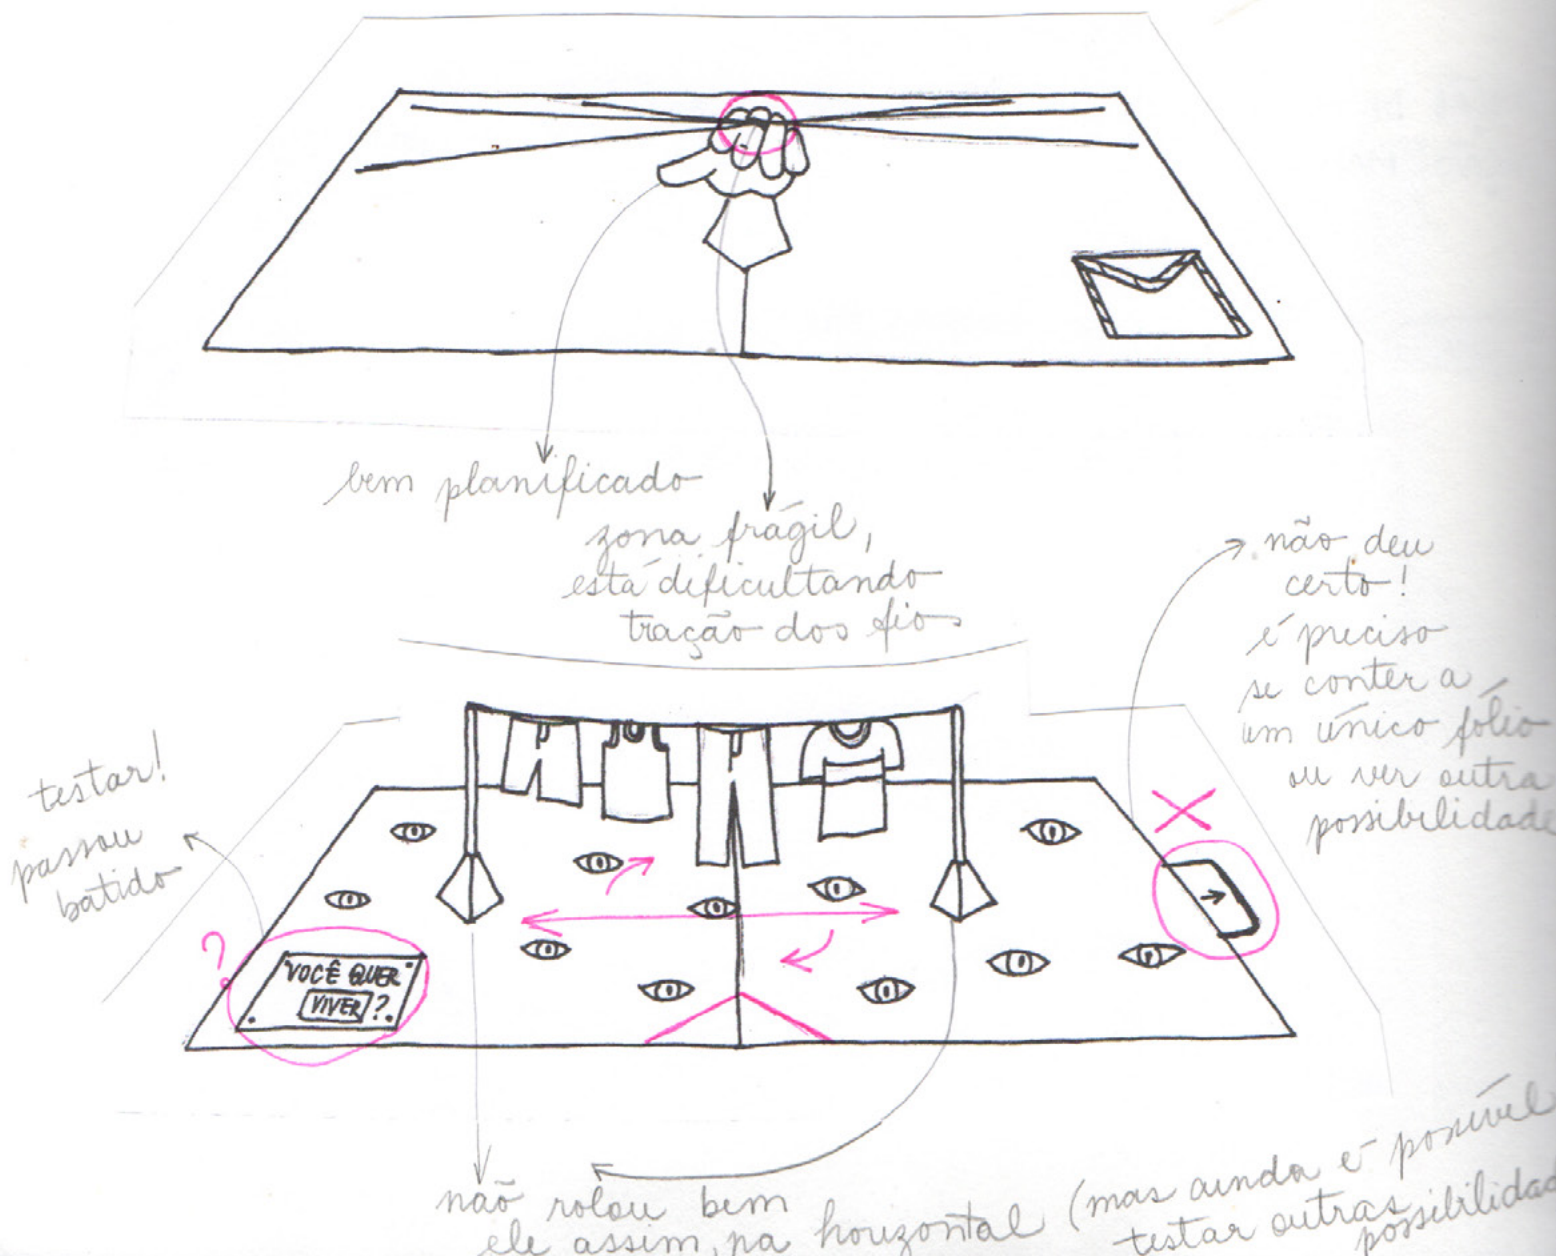 bem planificado
zona frágil,
está dificultando
tração dos fios
não deu
certo!
é preciso
se conter a
um único fólio
ou ver outra
possibilidade
testar!
passou
batido
?
VOCÊ QUER
VIVER ?
não rolou bem
ele assim, na horizontal (mas ainda é possível
testar outras
possibilidad